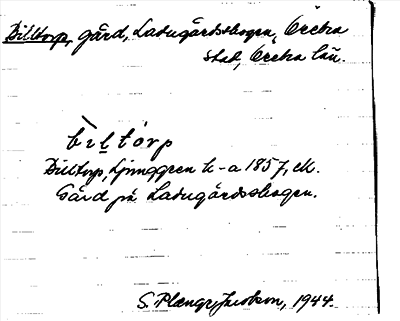 Billtorp, gård, Ladugårdsskogen, Örebro
stad, Örebro län.
biltorp
Billtorp, Ljunggren k-a 1857, etc.
Gård på Ladugårdsskogen.
S. Plenge, 1944.